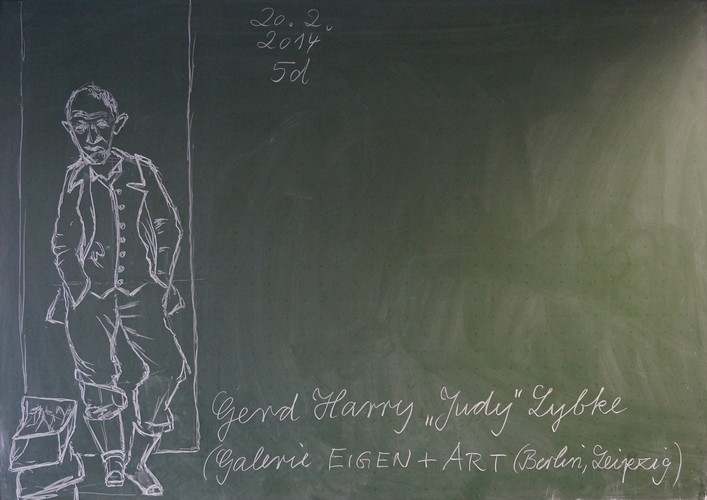 20. 2.
2014
5d
Gerd Harry „Judy" Lybke
(Galerie EIGEN + ART (Berlin, Leipzig)